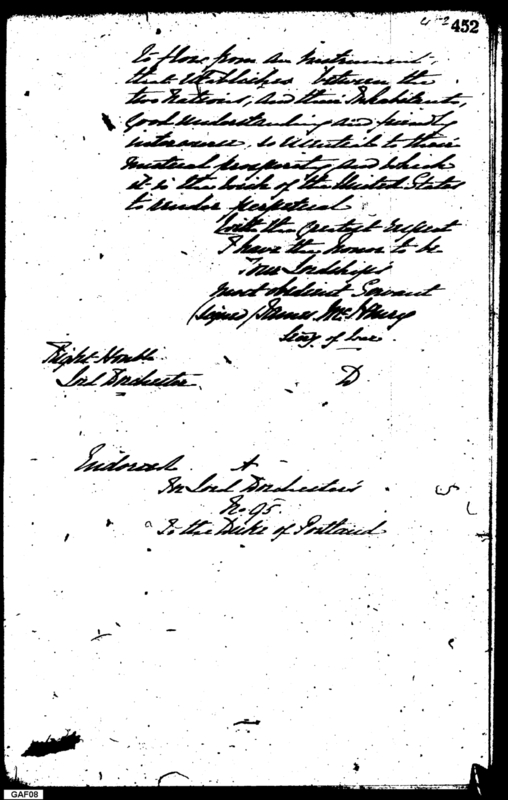 452
to flow from an instrument,
that establishes between the
two Nations, and their Inhabitants,
good understanding and friendly
intercourse so essential to their
mutual prosperity and which
it is the wish of the United States
to render perpetual
With the greatest respect
I have the honor to be
Your Lordship's
most obedient Servant
(signed) James McHenry
Secy. of War.
Right Honble
Lord Dorchester
D
Endorsed A
In Lord Dorchester's
No 95
To the Duke of Portland
GAF08